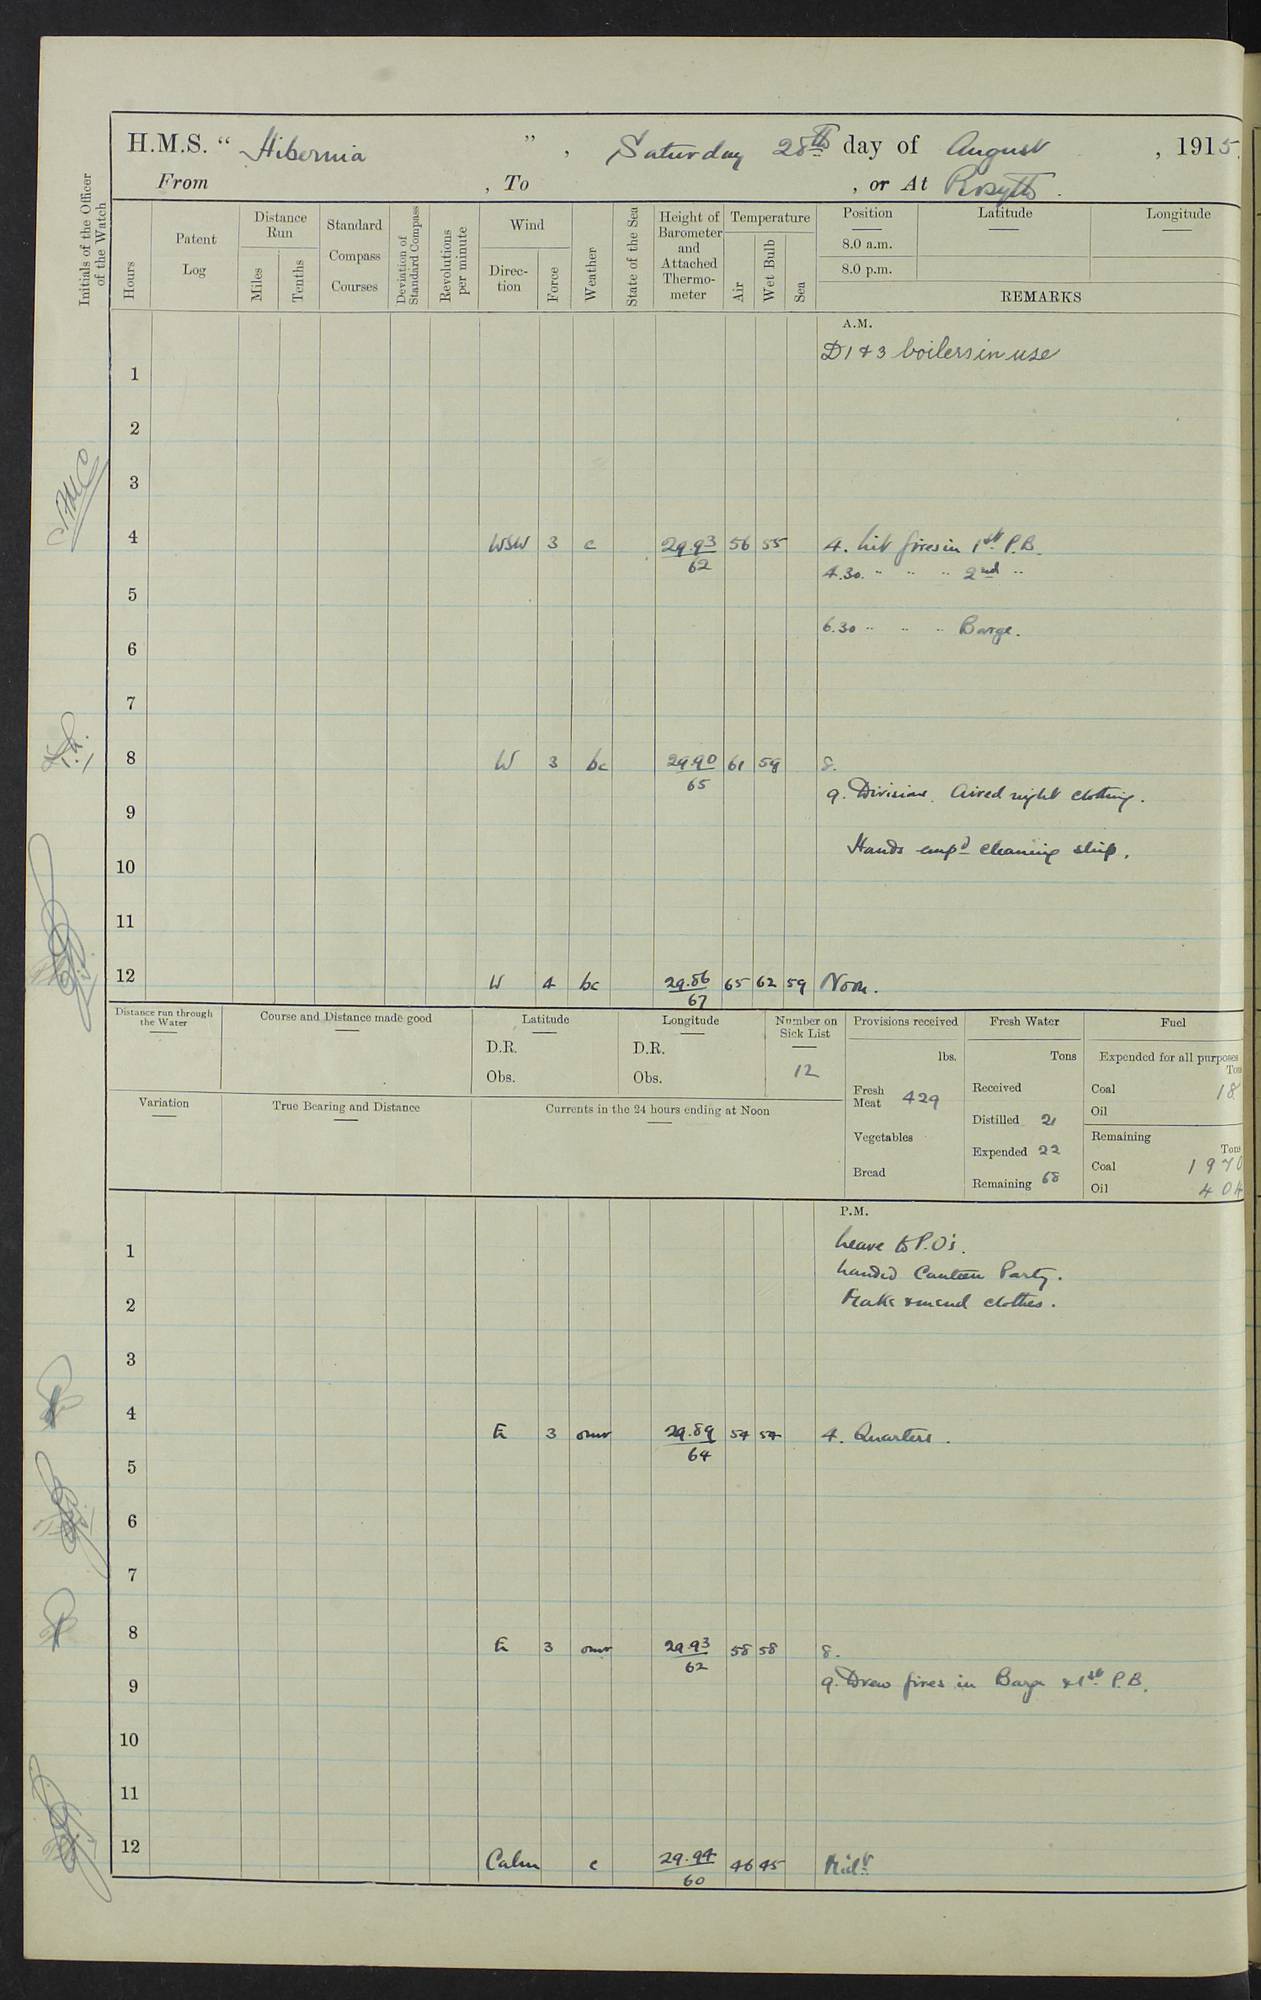 H.M.S. “ Hibernia ” , Saturday 28th day of August , 1915.
From , To , or At Rosyth .
Initials of the Officer of the Watch
Hours
Patent Log
Distance Run
Miles
Tenths
Standard Compass Courses
Deviation of Standard Compass
Revolutions per minute
Wind
Direction
Force
Weather
State of the Sea
Height of Barometer and Attached Thermometer
Temperature
Air
Wet Bulb
Sea
Position
8.0 a.m.
8.0 p.m.
Latitude
Longitude
REMARKS
A.M.
D 1 & 3 boilers in use
1
2
3
4 WSW 3 c 29.93/62 56 55 4. Lit fires in 1st P.B.
4.30. " " " 2nd "
5
6.30 " " " Barge.
6
7
8 W 3 bc 29.90/65 61 59 8.
9. Divisions. Aired night clothing.
9
Hands emp'd cleaning ship.
10
11
12 W 4 bc 29.86/67 65 62 59 Noon.
Distance run through the Water
Course and Distance made good
Latitude
D.R.
Obs.
Longitude
D.R.
Obs.
Number on Sick List
12
Provisions received
lbs.
Fresh Meat 429
Vegetables
Bread
Fresh Water
Tons
Received
Distilled 21
Expended 22
Remaining 68
Fuel
Expended for all purposes
Tons
Coal 18
Oil
Remaining
Tons
Coal 1970
Oil 404
Variation
True Bearing and Distance
Currents in the 24 hours ending at Noon
P.M.
Leave to P.O's.
1
Landed Canteen Party.
2 Make & mend clothes.
3
4 E 3 omr 29.89/64 54 54 4. Quarters.
5
6
7
8 E 3 omr 29.93/62 58 58 8.
9. Drew fires in Barge & 1st P.B.
9
10
11
12 Calm c 29.94/60 46 45 Midt